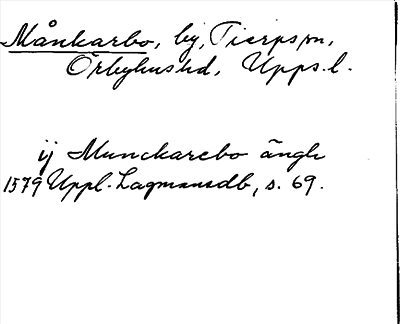 Månkarbo, by, Tierps sn,
Örbyhus hd, Upps. l.
ij Munckarebo ängh
1579 Uppl. Lagmansdb, s. 69.